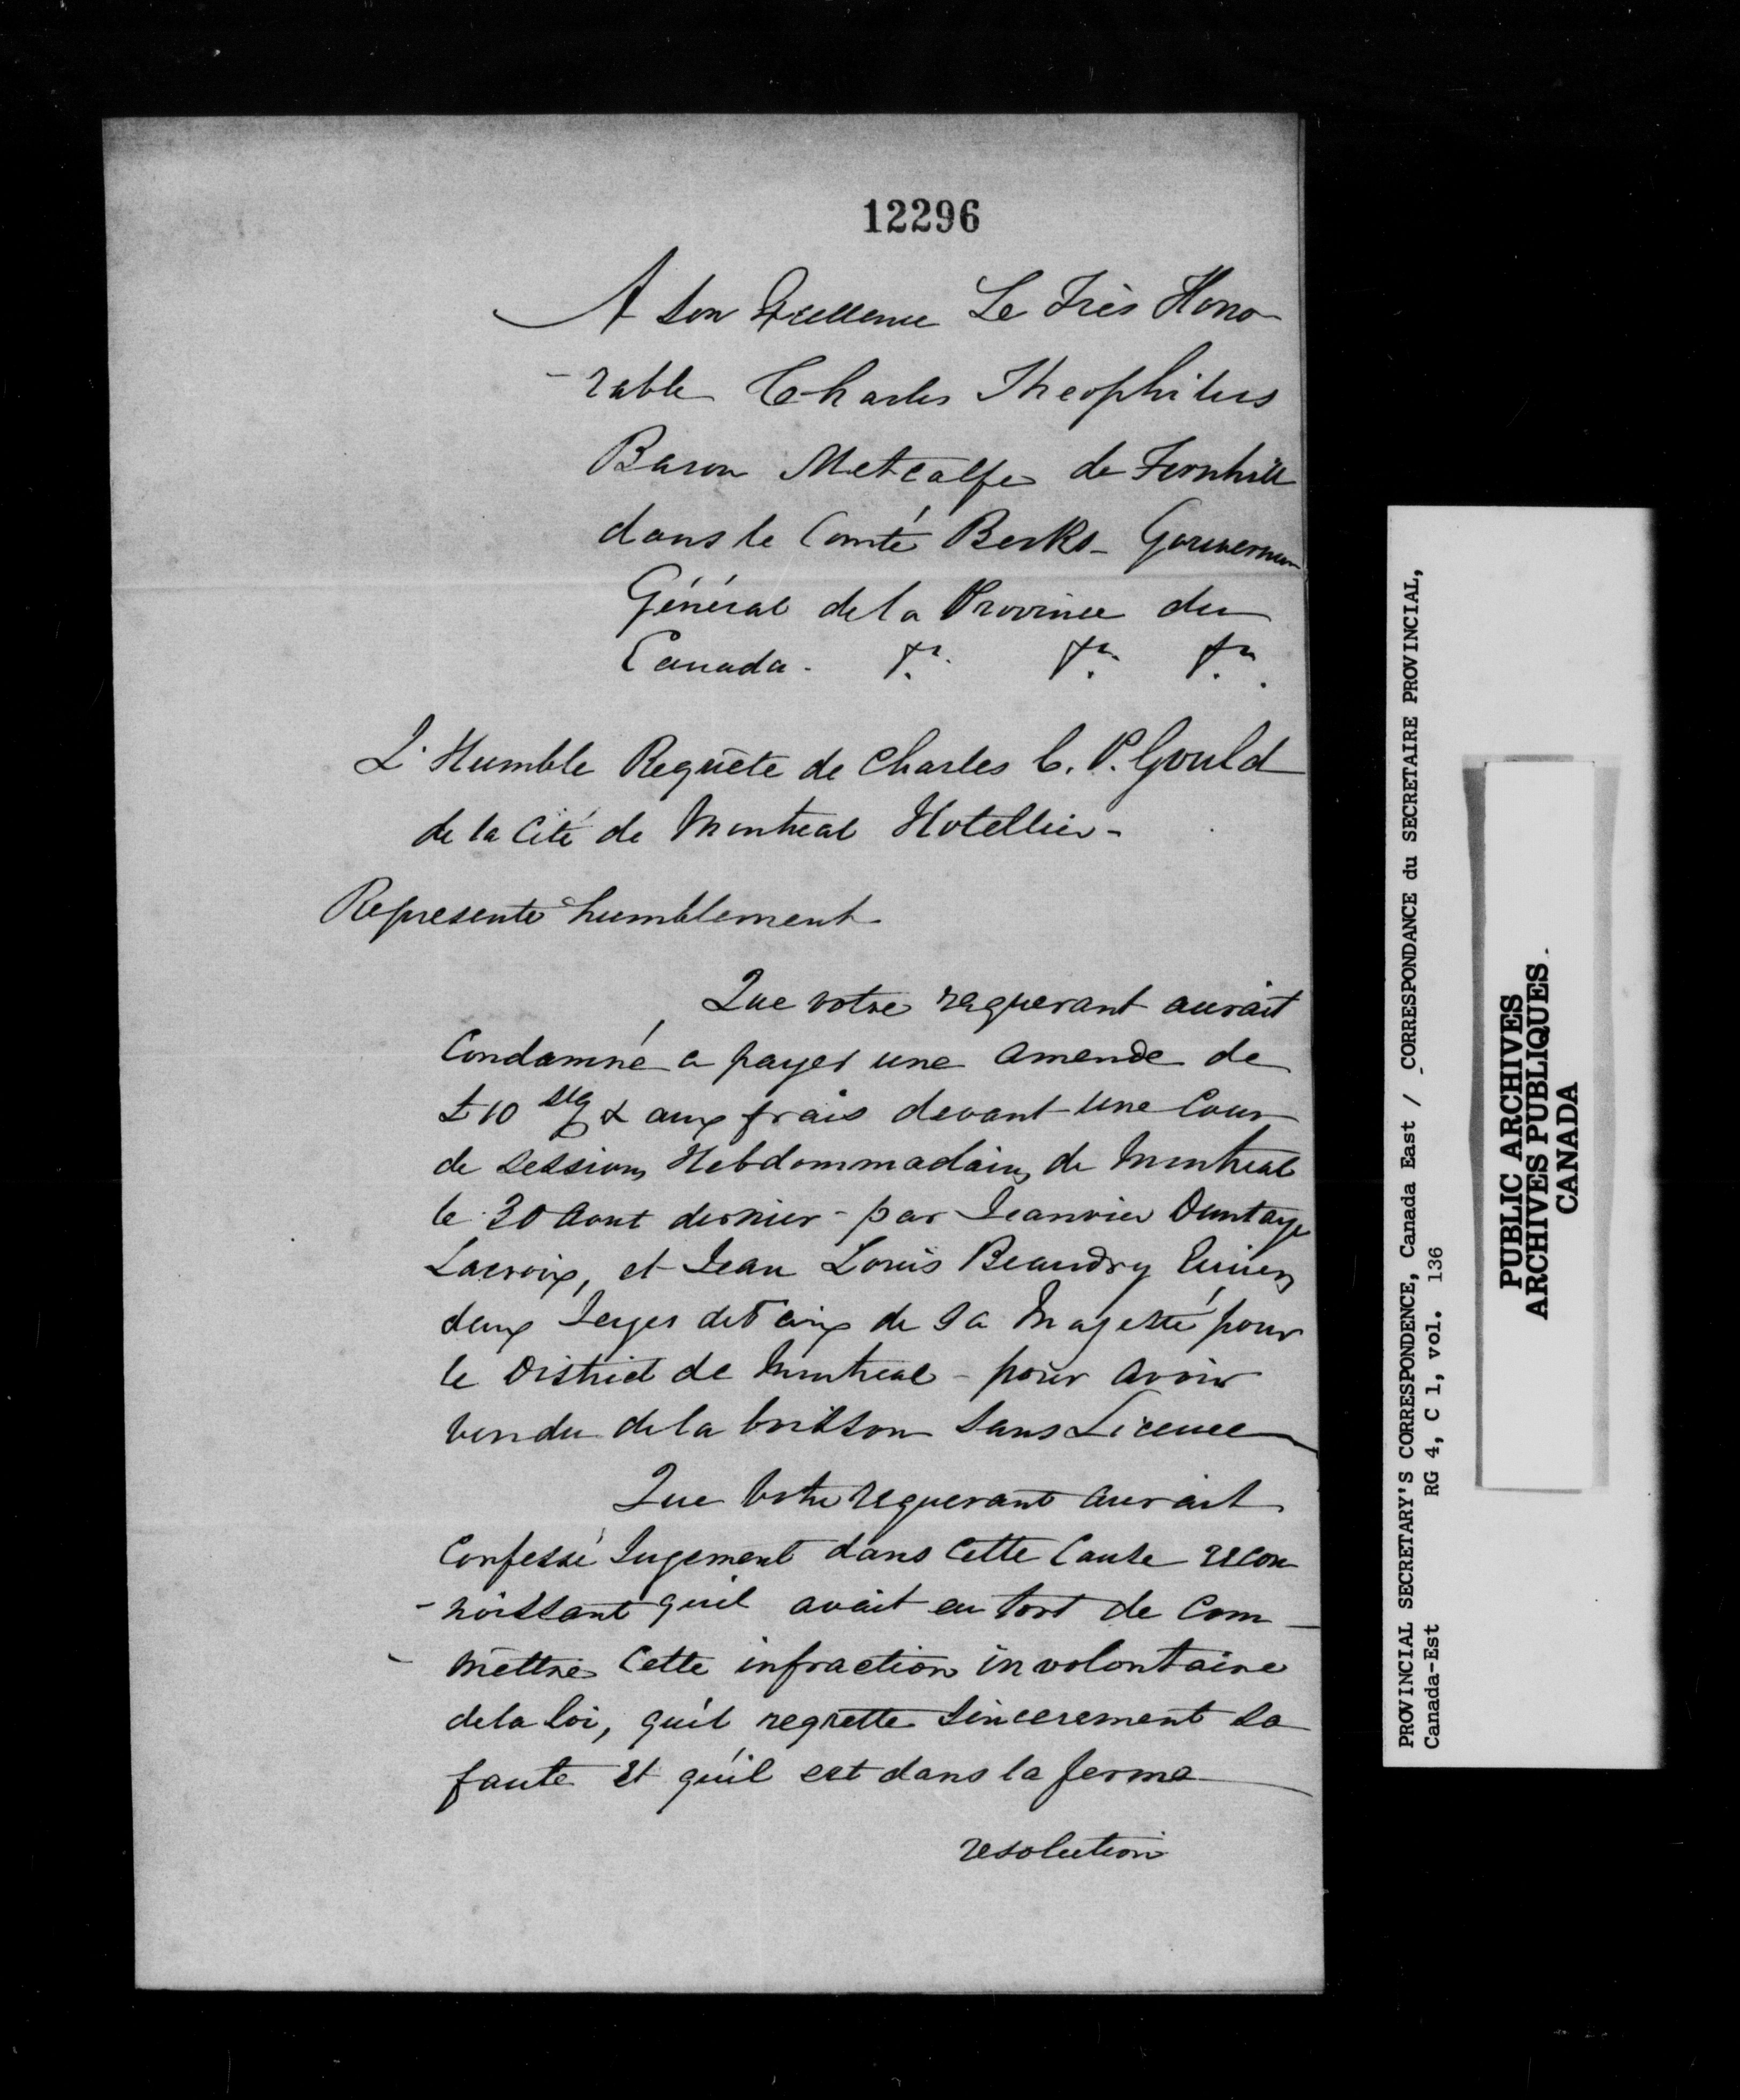 12296
A Son Excellence Le Très Hono
- rable Charles Theophilus
Baron Metcalfe de Fernhill
dans le Comté Berks - Gouverneur
Général de la Province du
Canada. &a. &a. &a.
L'Humble Requête de Charles C. P. Gould
de la Cité de Montreal Hotellier -
Represente humblement
Que votre requerant aurait
Condamné a payer une amende de
£10 Stg & aux frais devant une Cour
de Sessions Hebdommadaires de Montreal
le 30 Aout dernier - par Janvier
Lacroix, et Jean Louis Beaudry Ecuiers
deux Juges de Paix de Sa Majesté pour
le District de Montreal - pour avoir
vendu de la boisson sans Licence
Que Votre requerant aurait
Confessé Jugement dans cette Cause recon
- noissant qu'il avait eu tort de Com -
- mettre Cette infraction involontaire
de la loi, qu'il regrette sincerement sa
faute et qu'il est dans la ferme
resolution
PROVINCIAL SECRETARY'S CORRESPONDENCE, Canada East / CORRESPONDANCE du SECRETAIRE PROVINCIAL,
Canada-Est RG 4, C 1, vol. 136
PUBLIC ARCHIVES
ARCHIVES PUBLIQUES
CANADA